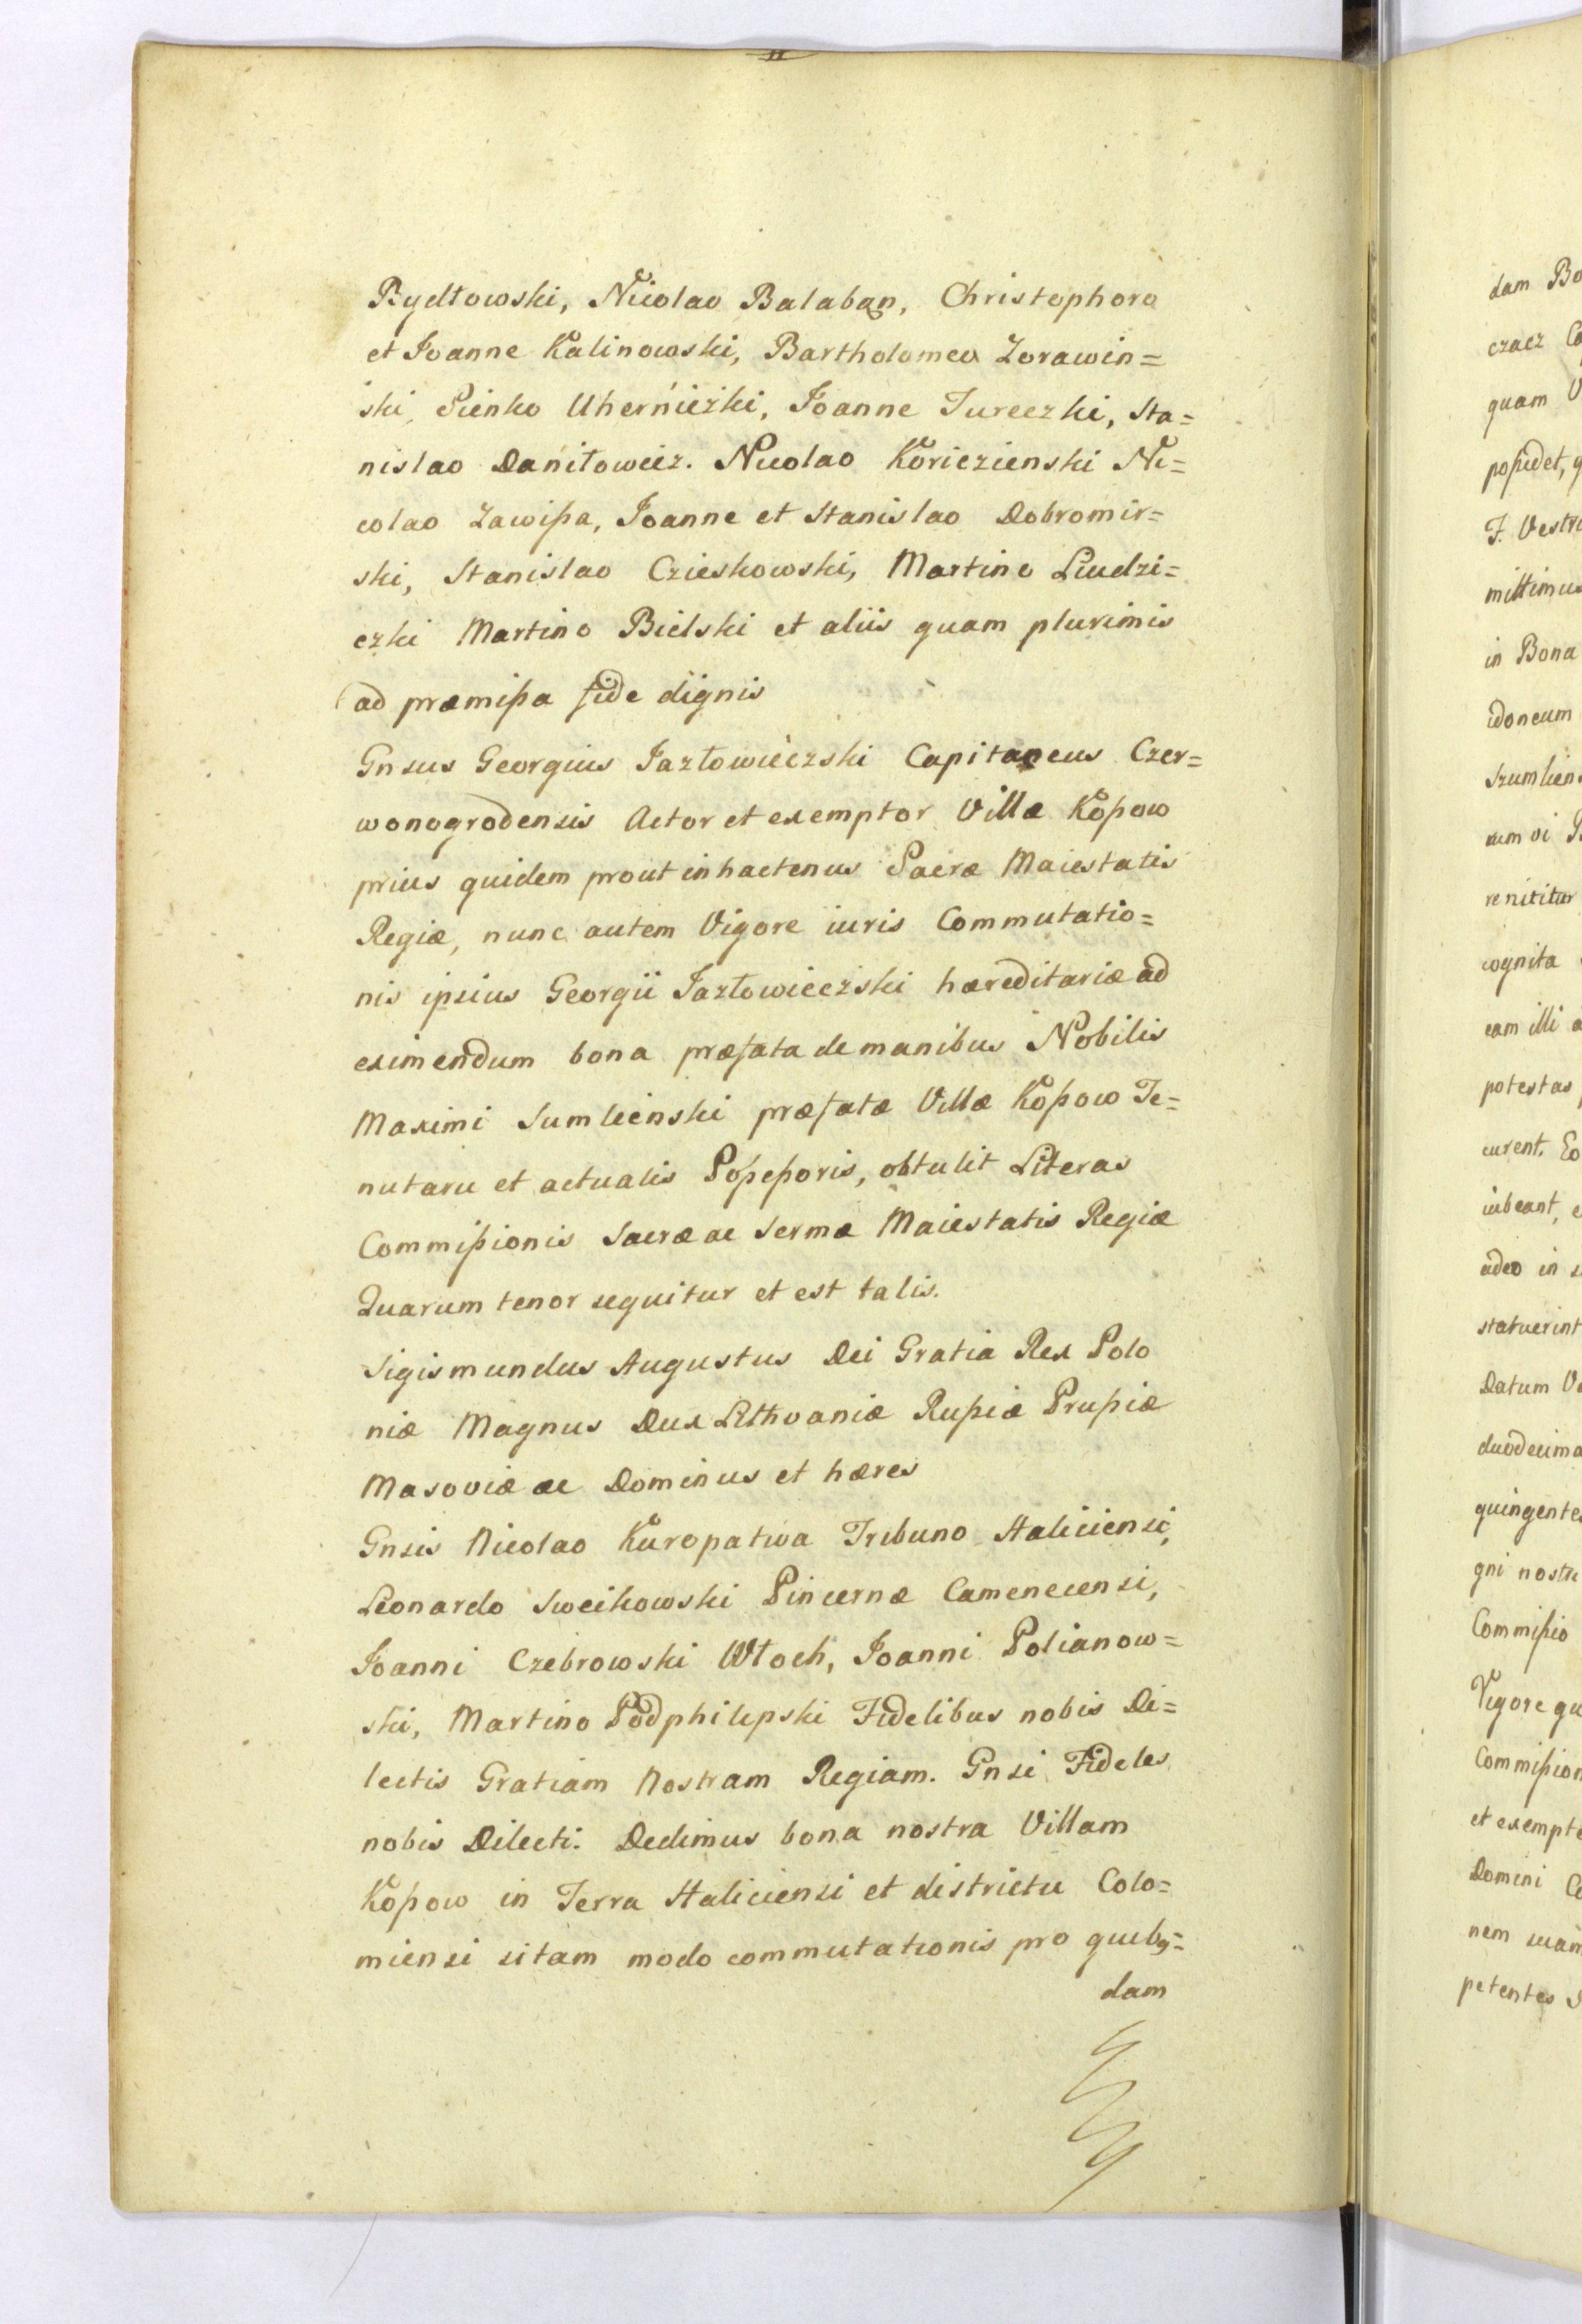 Rydłowski, Nicolao Balaban, Christophoro
et Ioanne Kalinowski, Bartholomeo Zorawin=
ski Sienko Uherniczki, Ioanne Tureczki, Sta=
nislao Daniłowicz. Nicolao Koriczienski Ni=
colao Zawißa, Ioanne et Stanislao Dobromir=
ski, Stanislao Czieskowski, Martino Liudzi=
czki Martino Bielski et aliis quam plurimis
ad præmißa fide dignis
Gnsus Georgius Jazłowieczski Capitaneus Czer=
wonogrodensis Actor et exemptor Villæ Koßow
prius quidem prout in hactenus Sacræ Maiestatis
Regiæ, nunc autem Vigore iuris Commutatio=
nis ipsius Georgii Jazłowieczski hæreditariæ ad
eximendum bona præfata de manibus Nobilis
Maximi Sumlienski præfatæ Villæ Koßow Te=
nutarii et actualis Poßeßoris, obtulit Literas
Commißionis Sacræ ac Sermæ Maiestatis Regiæ
Quarum tenor sequitur et est talis.
Sigismundus Augustus Dei Gratia Rex Polo
niæ Magnus Dux Lithvaniæ Rußiæ Prußiæ
Masoviæ ac Dominus et hæres
Gnsis Nicolao Kuropatwa Tribuno Haliciensi,
Leonardo Sweikowski Pincernæ Camenecensi,
Ioanni Czebrowski Włoch, Ioanni Polianow=
ski, Martino Podphilipski Fidelibus nobis Di=
lectis Gratiam Nostram Regiam. Gnsi Fideles
nobis Dilecti. Dedimus bona nostra Villam
Koßow in Terra Haliciensi et districtu Colo=
miensi sitam modo commutationis pro quibq=
dam
dam Bo
czacz Co
quam V
poßidet, q
F. Vestr
mittimus
in Bona
idoneum
Szumlien
eum vi
renititur
cognita
eam illi a
potestas
curent. Eo
iubeant, e
adeo in s
statuerint
Datum
duodecima
quingente
gni nostri
Commißio
Vigore qu
Commißion
et exempto
Domini Co
nem suam
petentes